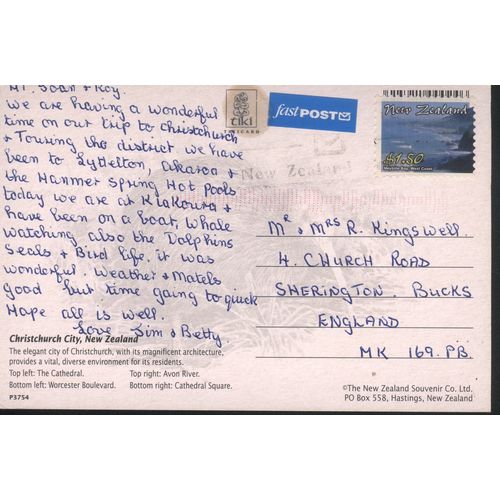 Hi. Joan & Roy.
we are having a wonderful
time on our trip to christchurch
& Touring the district. we have
been to Lyttelton, akaroa &
the Hanmer Spring Hot Pools
today we are at Kiakoura &
have been on a boat, Whale
watching also the Dolphins
Seals & Bird life, it was
wonderful. Weather & Motels
good but time going to quick
Hope all is well.
Love Jim & Betty.
Christchurch City, New Zealand
The elegant city of Christchurch, with its magnificent architecture,
provides a vital, diverse environment for its residents.
Top left: The Cathedral. Top right: Avon River.
Bottom left: Worcester Boulevard. Bottom right: Cathedral Square.
P3754
tiki
POSTCARD
fastPOST
New Zealand
New Zealand
$1.50
Mr & Mrs R. Kingswell.
4. CHURCH ROAD
SHERINGTON. BUCKS
ENGLAND
MK 169. PB.
©The New Zealand Souvenir Co. Ltd.
PO Box 558, Hastings, New Zealand